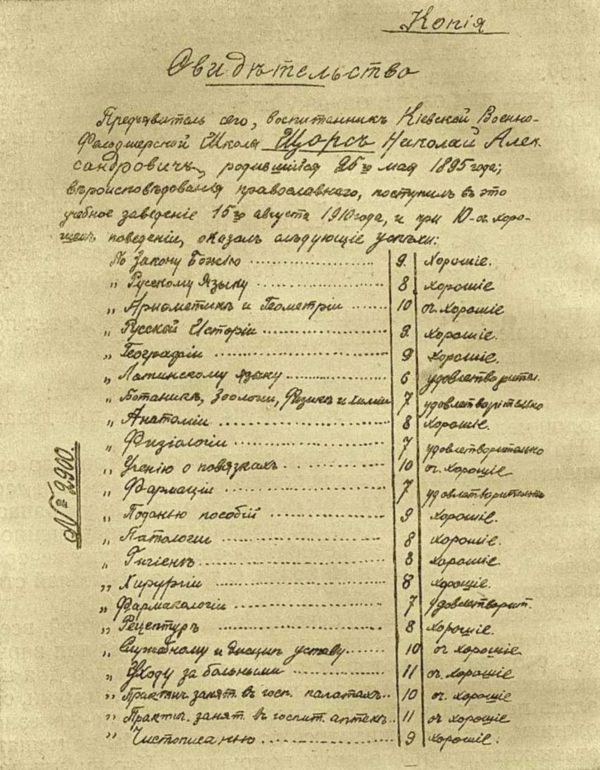 Копія
Свидѣтельство
Предъявитель сего, воспитанникъ Кіевской Военно-
Фельдшерской Школы Щорсъ Николай Алек-
сандровичъ, родившійся 25го мая 1895 года,
вѣроисповѣдованія православнаго, поступилъ въ это
учебное заведеніе 15го августа 1910 года, и при 10-оч. хоро-
шемъ поведеніи, оказалъ слѣдующіе успѣхи:
По Закону Божію 9 Хорошіе.
„ Русскому Языку 8 Хорошіе.
„ Ариѳметикѣ и Геометріи 10 оч. хорошіе
„ Русской Исторіи 9. хорошіе.
„ Географіи 9 Хорошіе.
„ Латинскому языку 6 удовлетворител.
„ Ботаникѣ, Зоологіи, Физикѣ и Химіи 7 удовлетворительно
„ Анатоміи 8 Хорошіе.
„ Физіологіи 7 удовлетворительно
„ Ученію о повязкахъ 10 оч. хорошіе
„ Фармаціи 7 удовлетворительн
„ Поданью пособій 9 Хорошіе.
„ Патологіи 8 Хорошіе.
„ Гигіенѣ 8 Хорошіе.
„ Хирургіи 8 хорошіе.
„ Фармакологіи 7 Удовлетворит.
„ Рецептурѣ 8 Хорошіе.
„ Служебному и дисцип. уставу 10 оч хорошіе
„ Уходу за больными 11 оч. хорошіе
„ Практич. занят. въ госп. палатахъ 10 оч. хорошіе
„ Практич. занят. въ госпит. аптекѣ 11 оч хорошіе
„ Чистописанью 9 Хорошіе.
№ 2900.